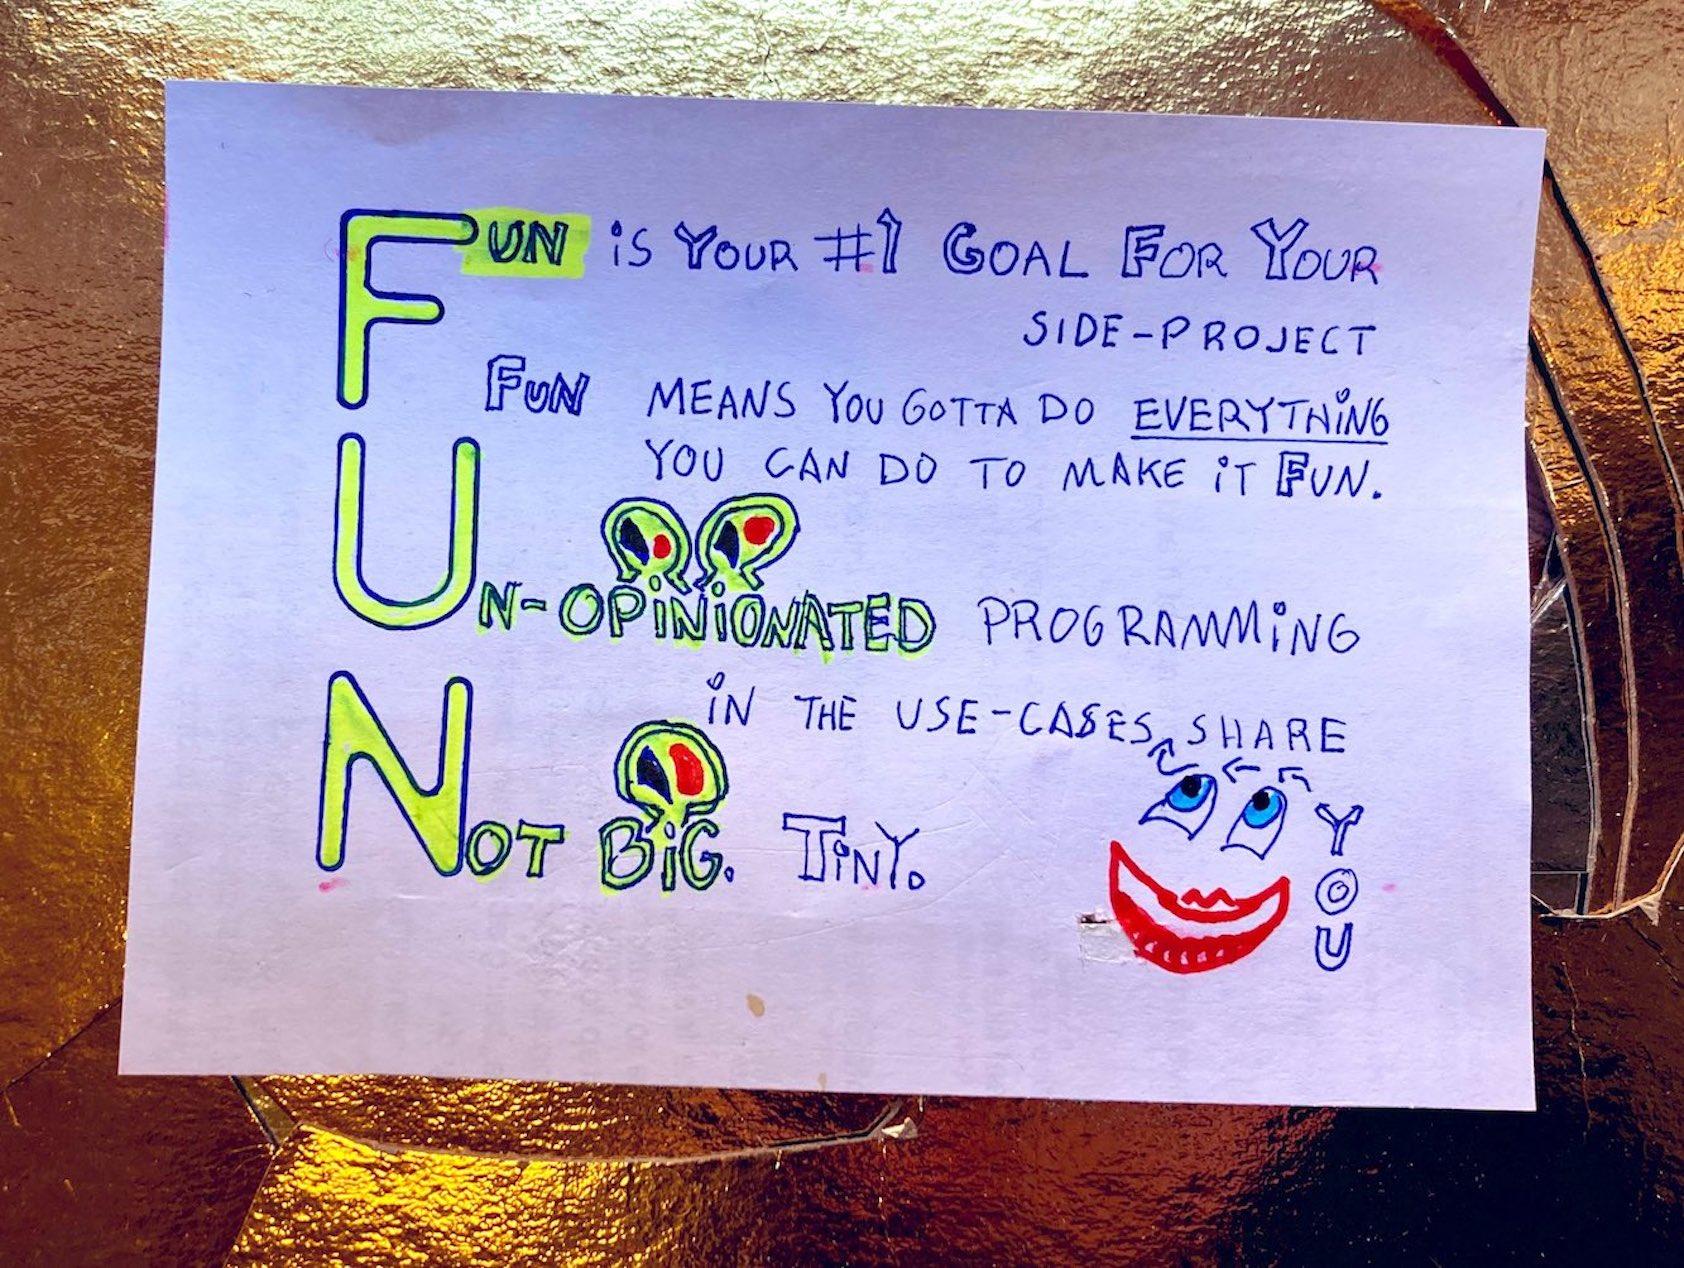 FUN iS YOUR #1 GOAL FOR YOUR
SIDE-PROJECT
FUN MEANS YOU GOTTA DO EVERYTHiNG
YOU CAN DO TO MAKE iT FUN.
UN-OPiNiONATED PROGRAMMiNG
iN THE USE-CASES SHARE
NOT BiG. TiNY.
YOU